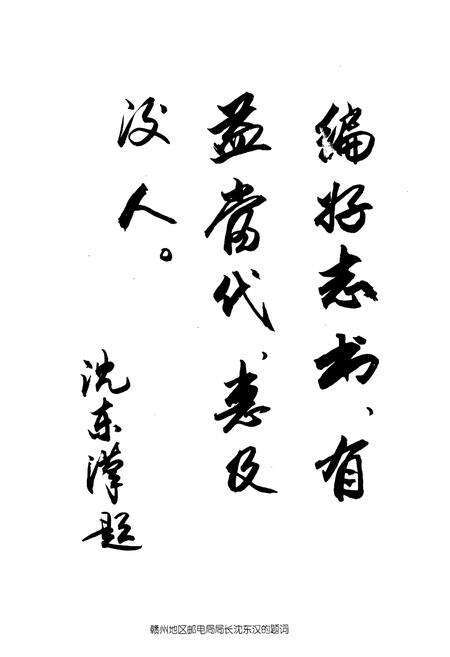 编好志书、有
益當代、惠及
后人。
沈东汉题
赣州地区邮电局局长沈东汉的题词